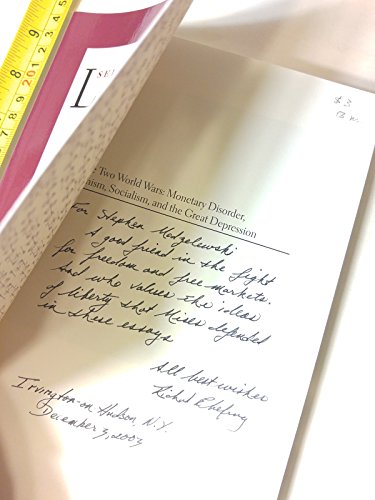 8 9
20 21
SE
$3
Two World Wars: Monetary Disorder,
Socialism, and the Great Depression
For Stephen
A good friend in the fight
for freedom and free markets.
And who values the ideas
of liberty that Mises defended
in these essays
All best wishes
Richard
Irvington-on Hudson, N.Y.
December 3, 2003